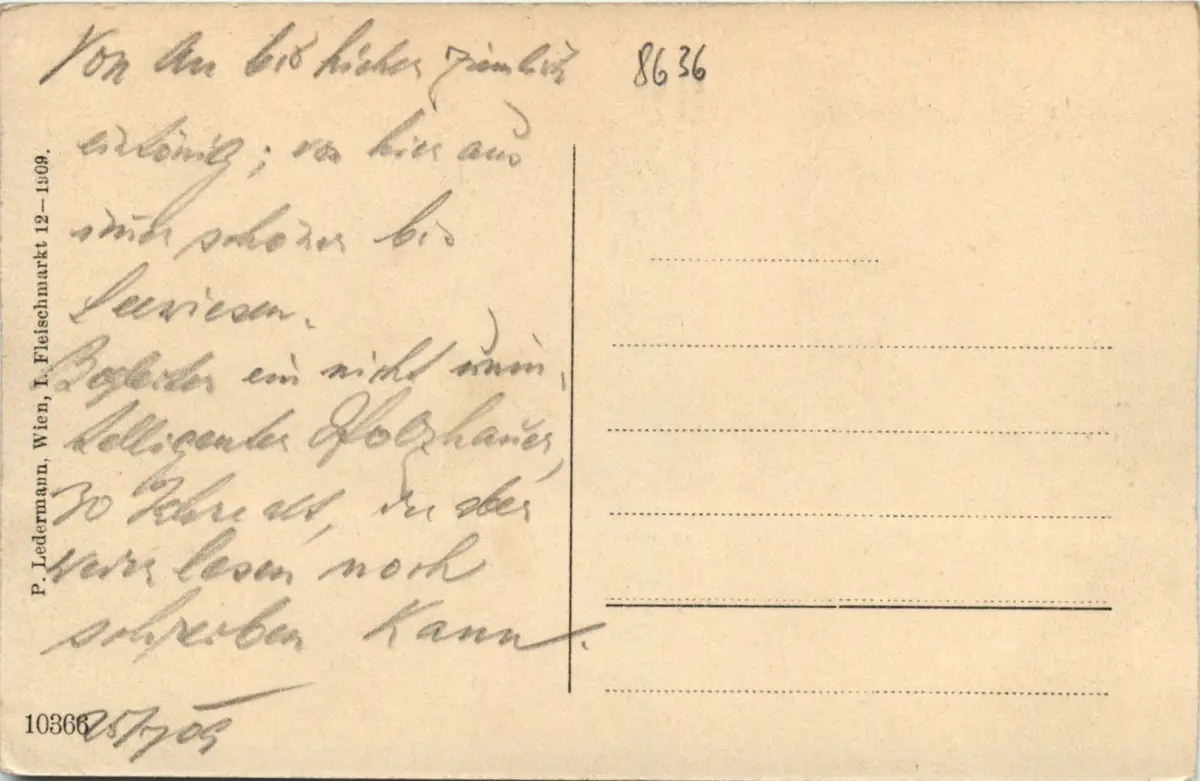 Von Au bis hieher ziemlich
eintönig; von hier aus
immer schöner bis
Seewiesen.
Begleiter ein nicht unin-
telligenter Holzhauer,
30 Jahre alt, der aber
weder lesen noch
schreiben kann.
25/7 09
8636
P. Ledermann, Wien, I. Fleischmarkt 12—1909.
10366